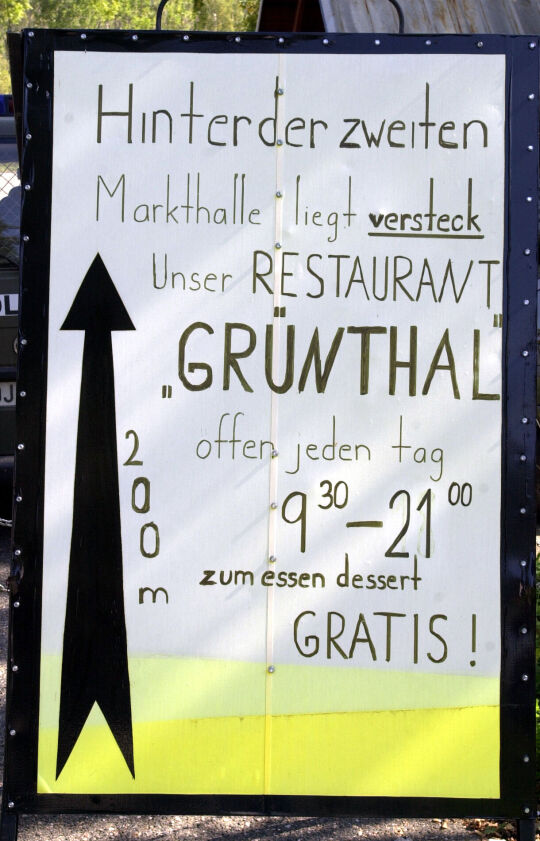 Hinter der zweiten
Markthalle liegt versteck
Unser RESTAURANT
„GRÜNTHAL"
öffen jeden tag
9 30 – 21 00
zum essen dessert
GRATIS!
200 m